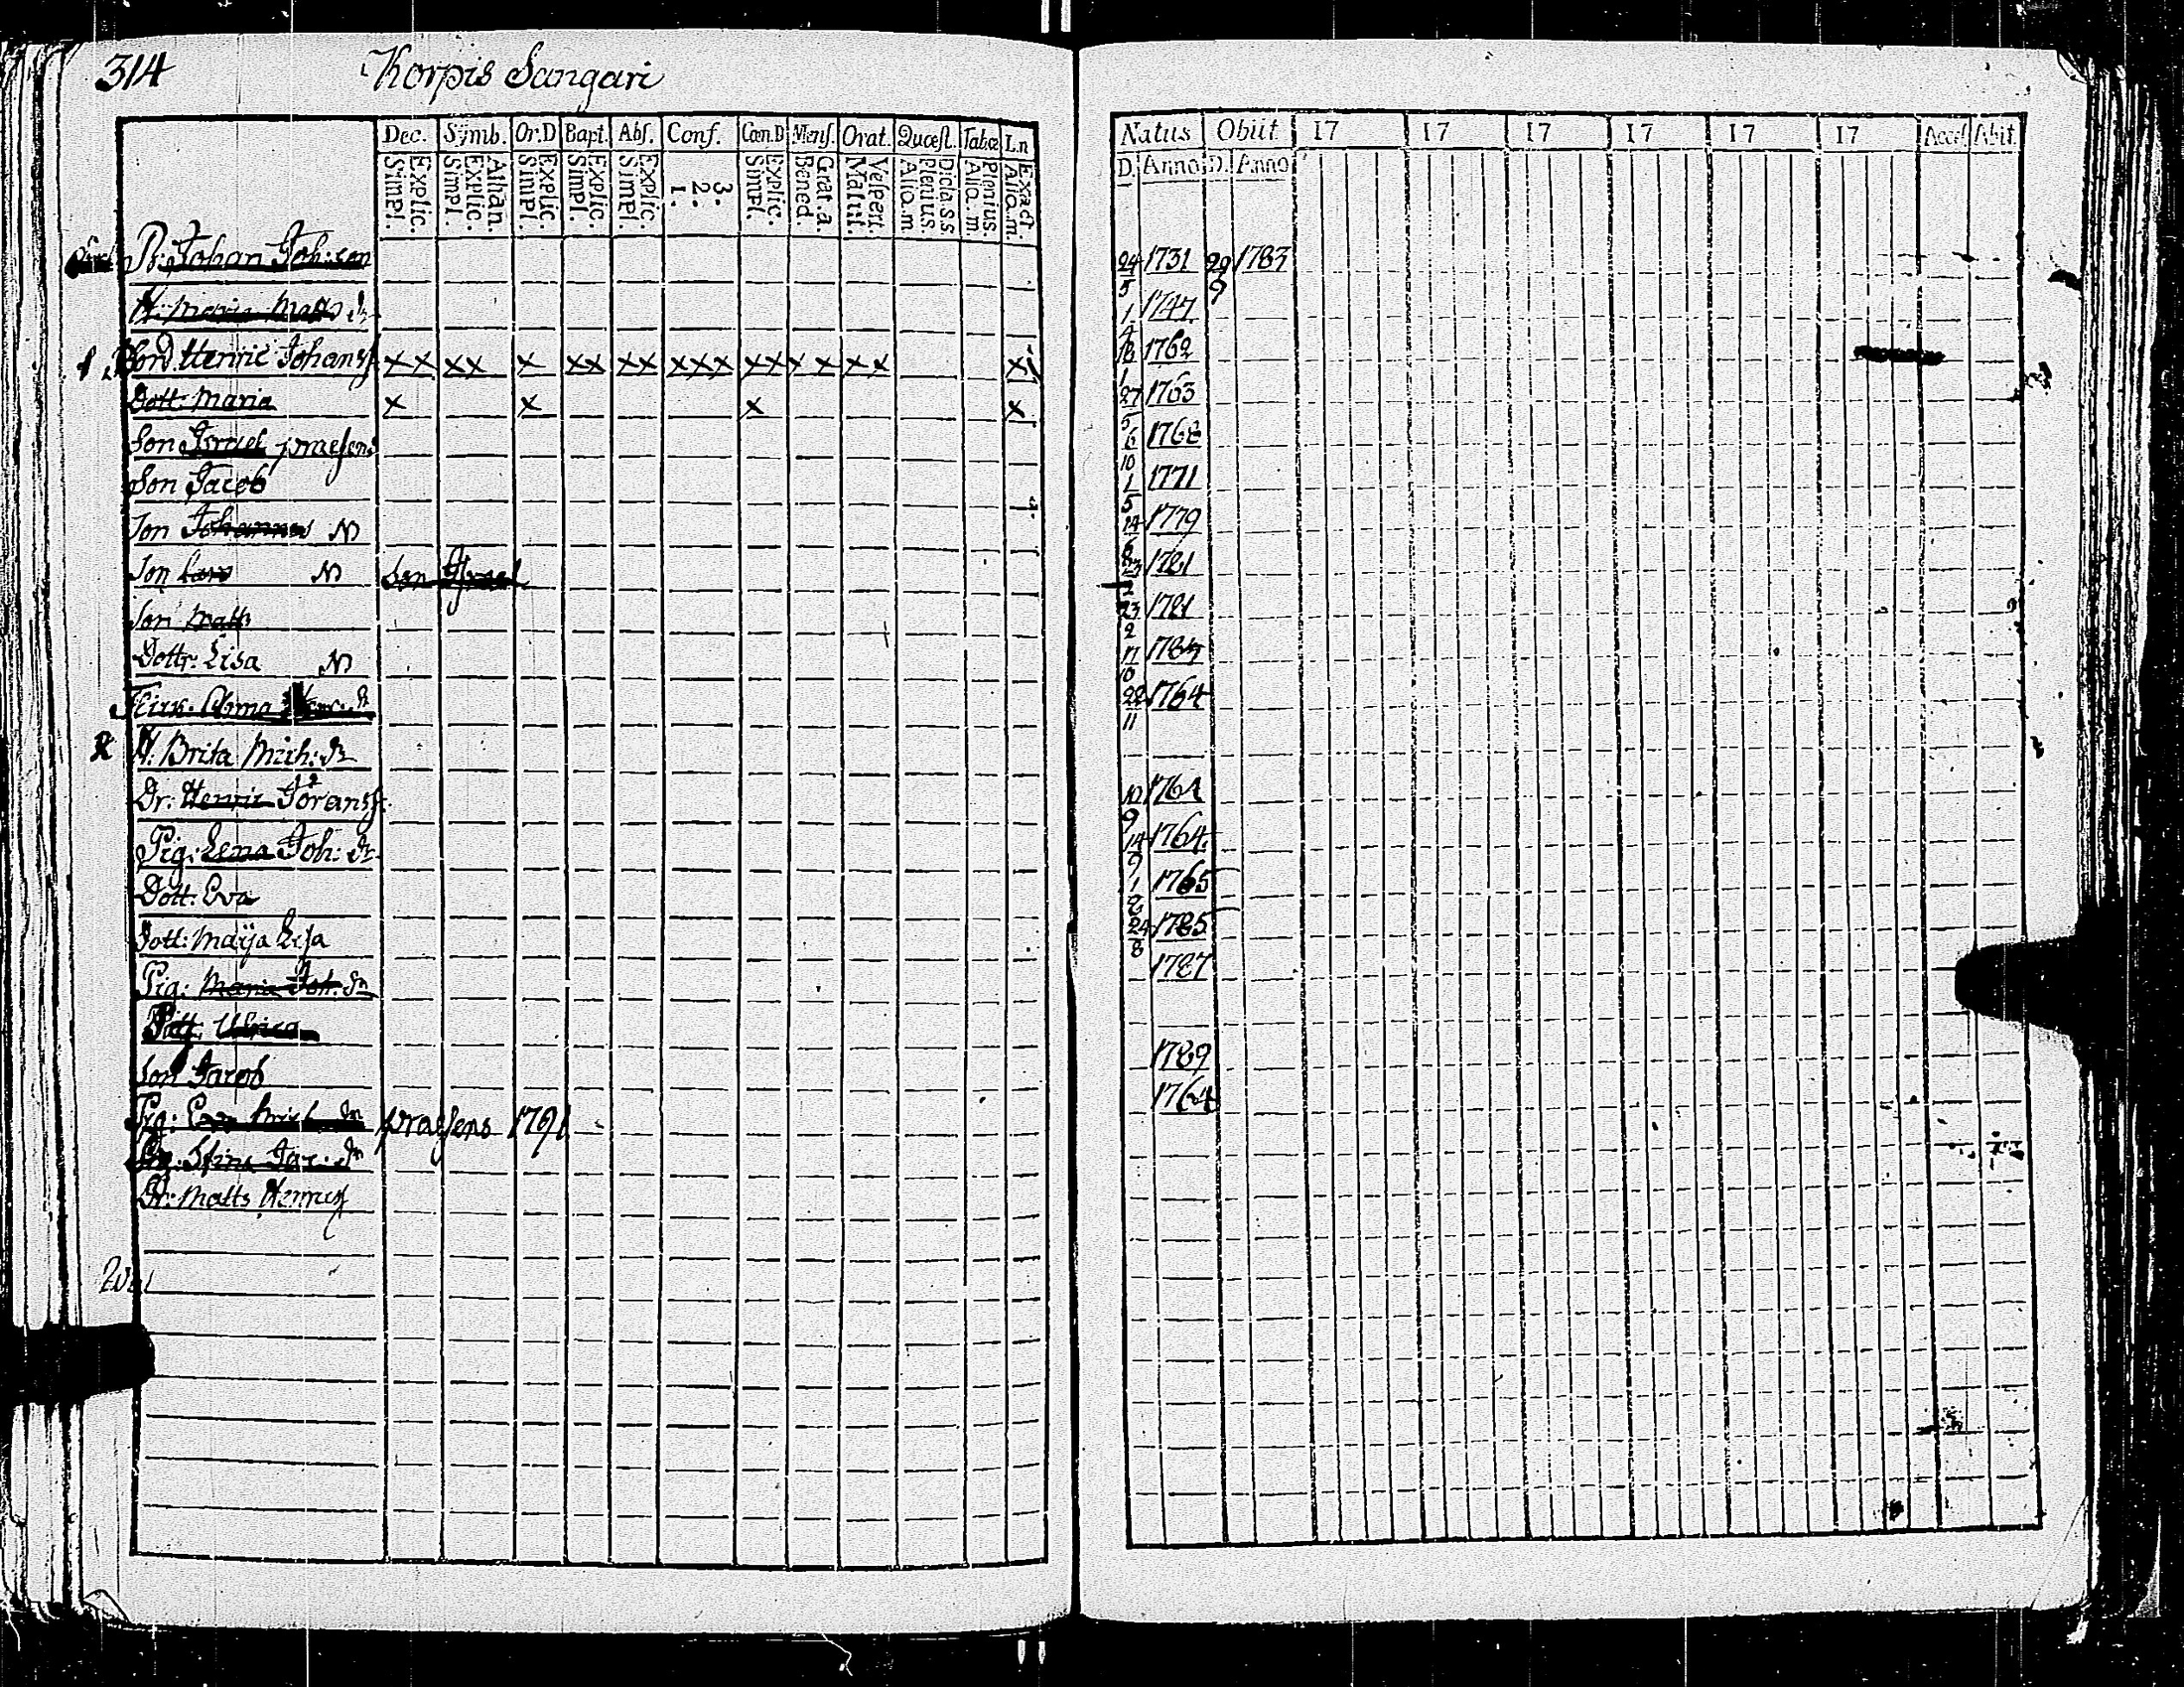 314 Korpis Sangari
Dec. Symb. Or.D Bapt. Abs. Conf. Cœn.D Mens. Orat. Quæst. Tabœ L.n
Simpl. Explic. Simpl. Explic. Athan. Simpl. Explic. Simpl. Explic. Simpl. Explic. 1. 2. 3. Simpl. Explic. Bened. Grat.a. Matut. Vespert. Aliq.m Plenius. Dicta s.s Aliq.m Plenius. Aliq.m. Exact.
Natus Obiit 17 17 17 17 17 17 Accel. Abit.
D. Anno D. Anno
B: Johan Joh:son 24/5 1731 29/9 1783
H: Maria Matts dr 1/4 1747
Son Henric Johanss x x x x x x x x x x x x x x x x x x x 18/1 1762
Dott: Maria x x x x 27/5 1763
Son Israel præsens 6/10 1768
Son Jacob 1/5 1771
Son Johannes N 14/6 1779
Son Lars N Son Israel 23/2 1781
Son Matts 23/2 1781
Dottr: Lisa N 17/10 1784
Anna 22/11 1764
2 H. Brita Mich: dr
Dr: Henric Göranss: 10/9 1761
Pig: Lena Joh: dr 14/9 1764
Dott: Eva 1/2 1765
Dott: Maija Lisa 24/8 1785
Pig: Maria Joh: dr 1787
Ulrica
Son Jacob 1789
Pig: præsens 1791 1764
Pig: Stina Jac: dr
Dr: Matts Henricss